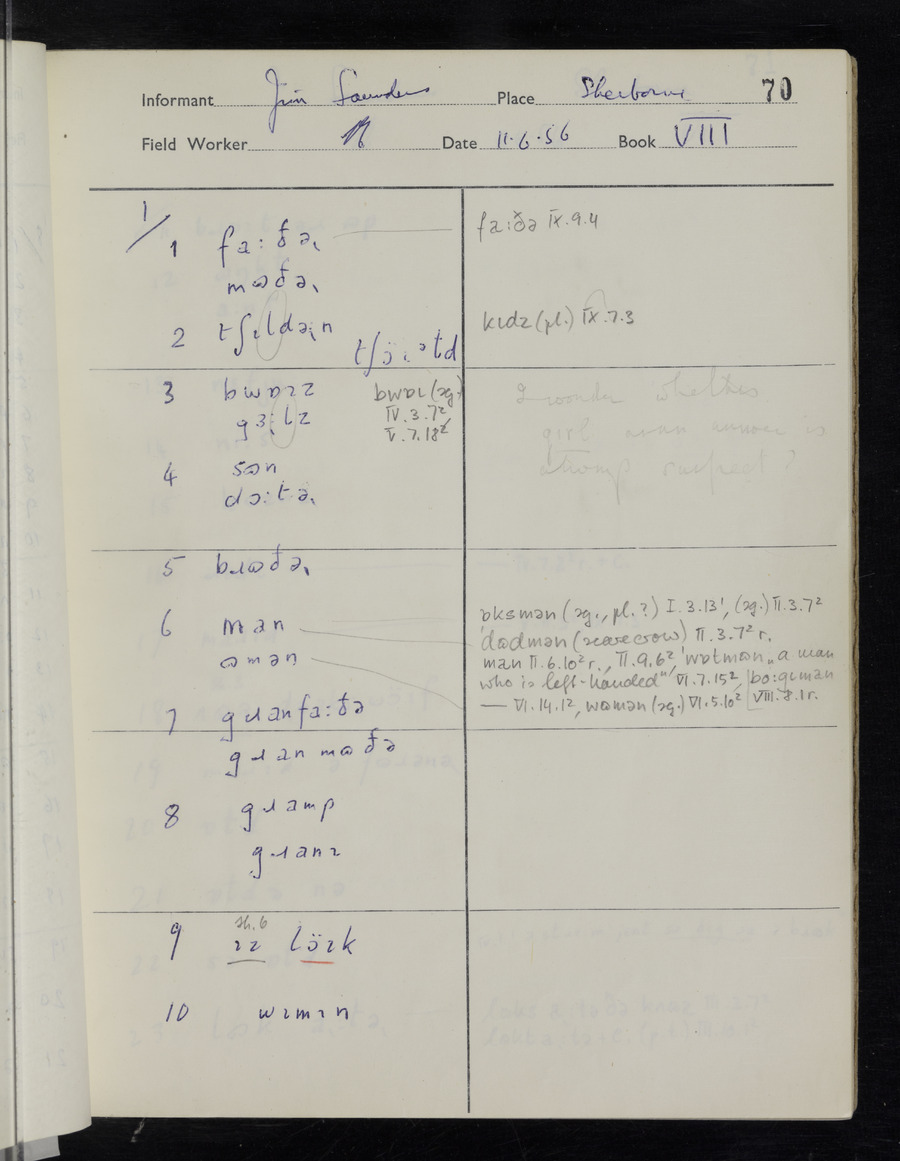 Informant Jim Saunders Place Sherborne 70
Field Worker Date 11·6·56 Book VIII
1/
1 fa:ðəɩ fa:ðə IX.9.4
mɷðəɩ
2 tʃɩldəɩn kɪdz (pl.) IX.7.3
3 bwɒɪz bwɒɪ (sg.)
gɜ:lz IV.3.7²
V.7.18²
I wonder whether
girl answer is
suspect?
4 sɷn
dɔ:təɩ
5 bɹɷðəɩ
6 man ɒksmən (sg., pl.?) I.3.13¹, (sg.) II.3.7²
ɷmən dadmən (scarecrow) II.3.7² r.
man II.6.10² r., II.9.6², wɒtmən „a man
who is left-handed" VI.7.15², bo:gɩman
VIII.8.1 r.
— VI.14.12, wɷmən (sg.) VI.5.10²
7 gɹanfa:ðə
gɹanmɷðə
8 gɹamp
gɹanɪ
9 sh.6
ɪz lɔ̈ɪk
10 wɪmɪn